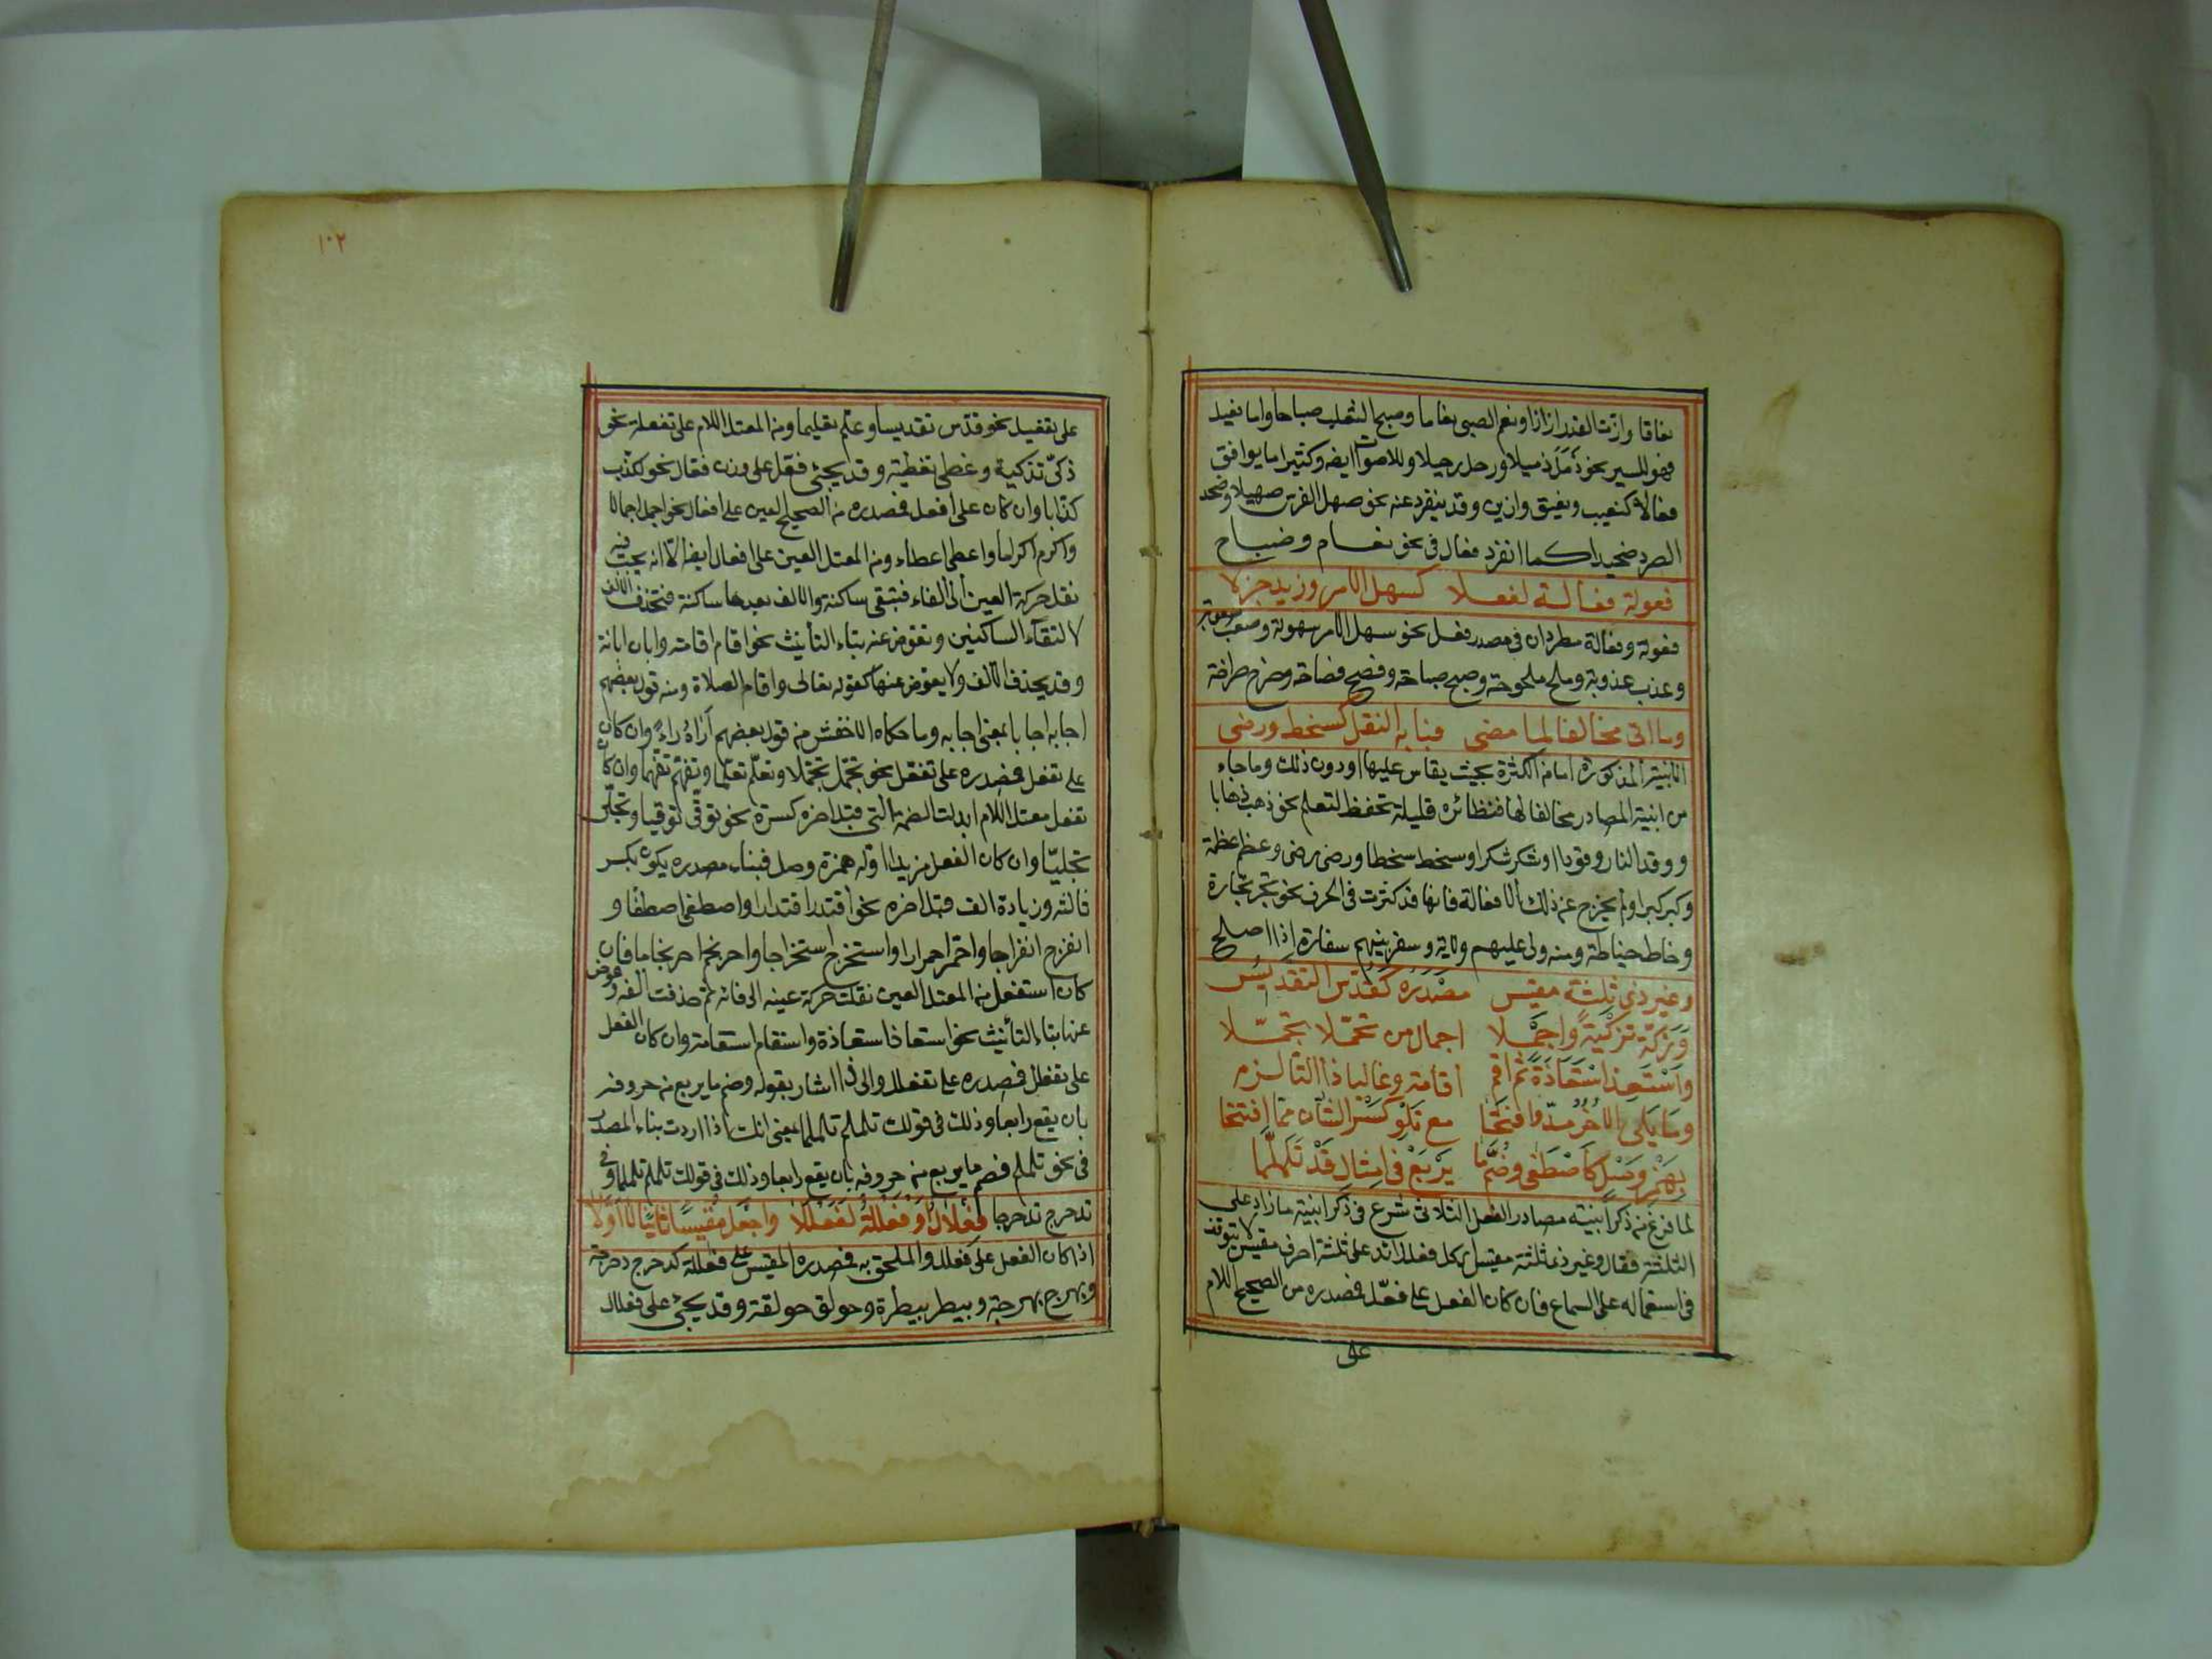 نغاقا وازت القدر ازازا ونغم الصبى بغاما وضبح الثعلب ضباحا واما فعيل
فهو للسير نحو ذمل ذميلا ورحل رحيلا وللاصوات ايضا وكثيرا ما يوافق
فعالا كنعيب ونغيق وازيز وقد ينفرد عنه نحو صهل الفرس صهيلا وصخد
الصرد صخيدا كما انفرد فعال فى نحو بغام وضباح
فعولة فعالة لفعلا كسهل الامر وزيد جزلا
فعولة وفعالة مطردان فى مصدر فعل نحو سهل الامر سهولة وصعب صعوبة
وعذب عذوبة وملح ملوحة وصبح صباحة وفصح فصاحة وصرح صراحة
وما اتى مخالفا لما مضى فبابه النقل كسخط ورضى
الابنية المذكورة امامه الكثرة بحيث يقاس عليها او دون ذلك وما جاء
من ابنية المصادر مخالفا لها فنظائره قليلة تحفظ لتعلم نحو ذهب ذهابا
ووقد النار وقودا وشكر شكرا وسخط سخطا ورضى رضى وعظم عظمة
وكبر كبرا ولم يخرج عن ذلك الا فعالة فانها قد كثرت فى الحرف نحو تجر تجارة
وخاط خياطة ومنه ولى عليهم ولاية وسفر بينهم سفارة اذا اصلح
وغير ذى ثلثة مقيس مصدره كقدس التقديس
وزكه تزكية واجملا اجمال من تجملا تجملا
واستعذ استعاذة ثم اقم اقامة وغالبا ذا التا لزم
وما يلى الاخر مد وافتحا مع كسر تلو الثان مما افتتحا
بهمز وصل كاصطفى وضم ما يربع فى امثال قد تلملما
لما فرغ من ذكر ابنية مصادر الفعل الثلاثى شرع فى ذكر ابنية ما زاد على
الثلثة فقال وغير ذى ثلثة مقيس اى كل فعل زائد على ثلثة احرف مقيس لا يتوقف
فى استعماله على السماع فان كان الفعل على فعل فمصدره من الصحيح اللام
على
١٠٢
على تفعيل نحو قدس تقديسا وعلم تعليما ومن المعتل اللام على تفعلة نحو
زكى تزكية وغطى تغطية وقد يجئ فعل على وزن فعال نحو كذب
كذابا وان كان على افعل فمصدره من الصحيح العين على افعال نحو اجمل اجمالا
واكرم اكراما واعطى اعطاء ومن المعتل العين على افعال ايضا الا انه يجب فيه
نقل حركة العين الى الفاء فتبقى ساكنة والالف بعدها ساكنة فتحذف الالف
لالتقاء الساكنين وتعوض عنه بتاء التأنيث نحو اقام اقامة وابان ابانة
وقد يحذف الالف ولا يعوض عنها كقوله تعالى واقام الصلاة ومنه قول بعضهم
اجابه اجابا بمعنى اجابة وما حكاه الاخفش من قول بعضهم اراه اراء وان كان
على تفعل فمصدره على تفعل نحو تجمل تجملا وتعلم تعلما وتفهم تفهما وان كان
تفعل معتل اللام ابدلت الضمة التى قبل اخره كسرة نحو توقى توقيا وتجلى
تجليا وان كان الفعل مزيدا اوله همزة وصل فبناء مصدره يكون بكسر
ثالثه وزيادة الف قبل اخره نحو اقتدر اقتدارا واصطفى اصطفا و
انفرج انفراجا واحمر احمرارا واستخرج استخراجا واحرنجم احرنجاما فان
كان استفعل من المعتل العين نقلت حركة عينه الى فائه ثم حذفت الفه وعوض
عنها بتاء التأنيث نحو استعاذ استعاذة واستقام استقامة وان كان الفعل
على تفعلل فمصدره على تفعلل والى ذا اشار بقوله وضم ما يربع من حروفه
بان يقع رابعا وذلك فى قولك تلملم تلملما يعنى انك اذا اردت بناء المصدر
فى نحو تلملم فضم ما يربع من حروفه بان يقع رابعا وذلك فى قولك تلملم تلملما وفى
تدحرج تدحرجا فعلال او فعللة لفعللا واجعل مقيسا ثانيا لا اولا
اذا كان الفعل على فعلل والملحق به فمصدره المقيس على فعللة كدحرج دحرجة
وبهرج بهرجة وبيطر بيطرة وحولق حولقة وقد يجئ على فعلال